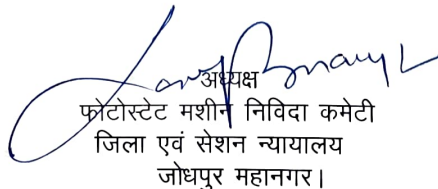 अध्यक्ष
फोटोस्टेट मशीन निविदा कमेटी
जिला एवं सेशन न्यायालय
जोधपुर महानगर।